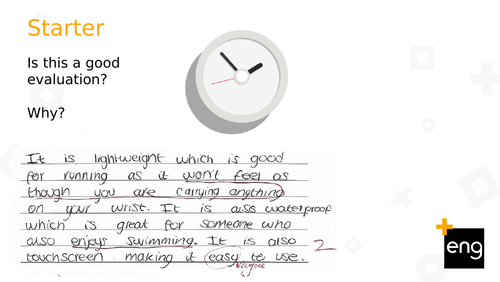 Starter
Is this a good
evaluation?
Why?
It is lightweight which is good
for running as it won't feel as
though you are carrying anything
on your wrist. It is also waterproof
which is great for someone who
also enjoys swimming. It is also 2
touchscreen making it easy to use.
eng